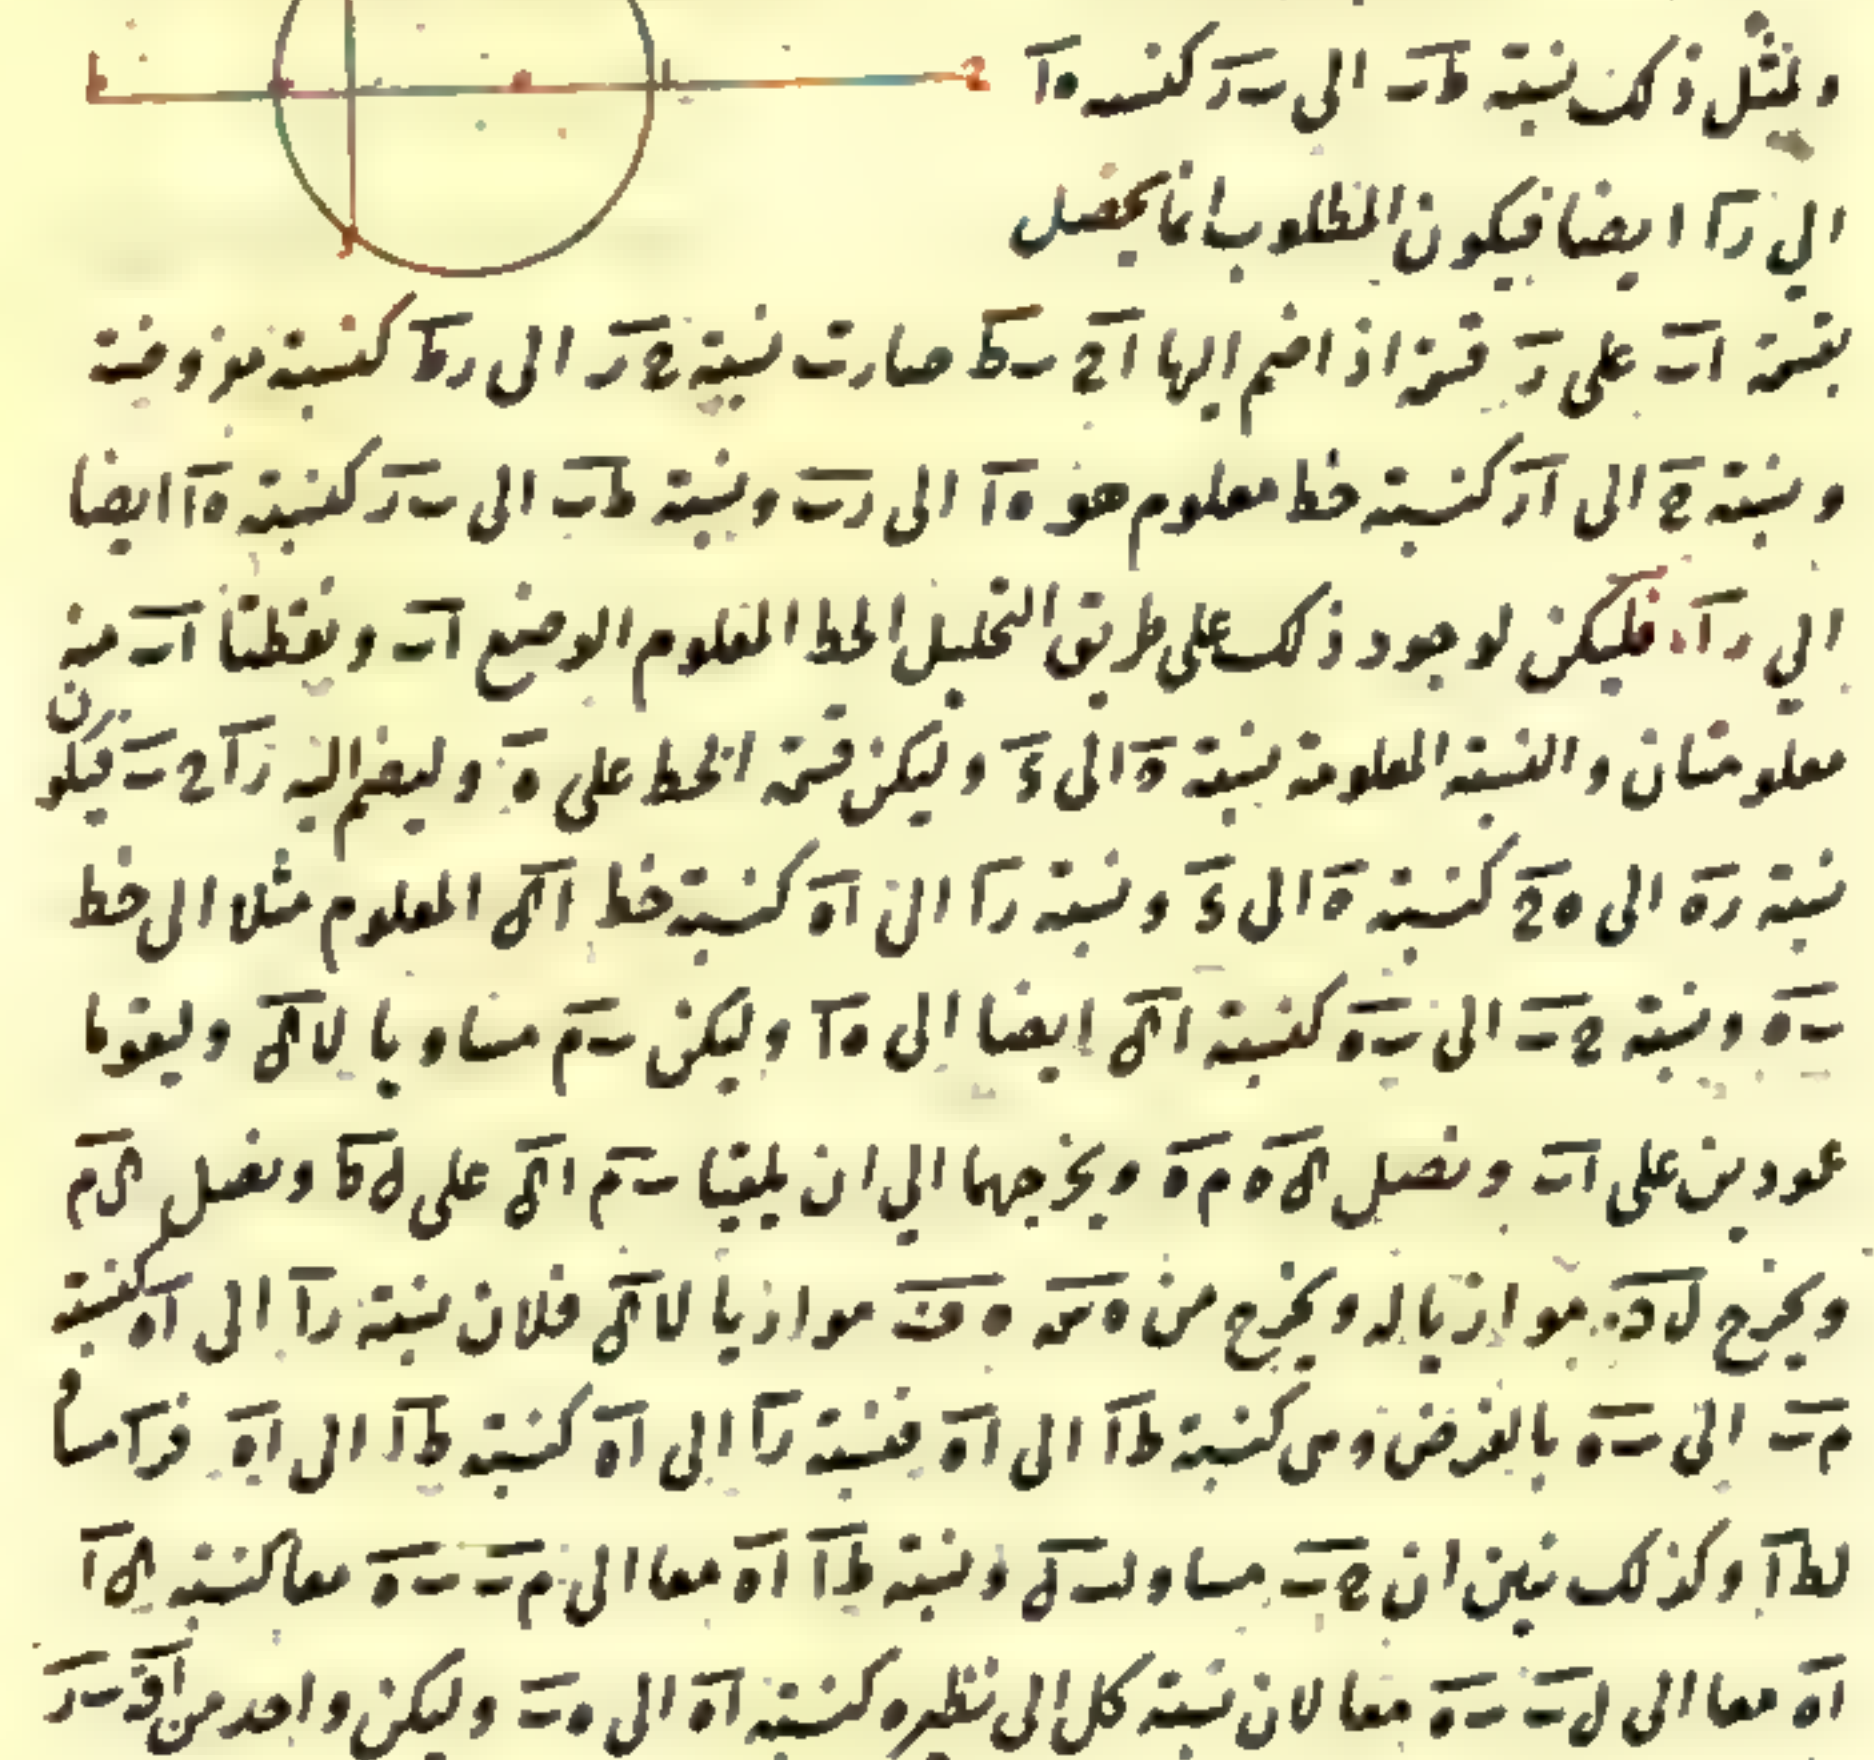 ولمثل ذلك نسبة طب الى ب ر كنسبة ه ا
الى ر ا ايضا فيكون المطلوب انما يحصل
بقسمة اب على ر قسمة اذا ضم اليها ا ح ب ط صارت نسبة ح ر الى ر ط كنسبة مفروضة
ونسبة ح الى ا ر كنسبة خط معلوم هو ه ا الى ر ب ونسبة ط ب الى ب ر كنسبة ه ا ايضا
الى ر ا فليكن لوجود ذلك على طريق التحليل الخط المعلوم الوضع اب ونقطتا اب منه
معلومتان والنسبة المعلومة نسبة ه الى ى وليكن قسمة الخط على ه وليضم اليه ر ا ح ب فيكون
نسبة ر ه الى ه ح كنسبة ه الى ى ونسبة ر ا الى ا ه كنسبة خط ا ك المعلوم مثلا الى خط
ب ه ونسبة ح ب الى ب ه كنسبة ا ك ايضا الى ه ا وليكن ب م مساويا لا ك وليقوما
عمودين على اب ونصل ك ه م ه ونخرجهما الى ان يلقيا ب م ا ك على ل ط ونصل ك م
ونخرج ل موازيا له ونخرج من ه س ه ف موازيا لا ك فلان نسبة ر ا الى ا ه كنسبة
م ب الى ب ه بالفرض وهى كنسبة ط ا الى ا ه فنسبة ر ا الى ا ه كنسبة ط ا الى ا ه فر ا مساو
لط ا وكذلك نبين ان ح ب مساو لب ل ونسبة ط ا ا ه معا الى م ب ب ه معا كنسبة ك ا
ا ه معا الى ل ب ب ه معا لان نسبة كل الى نظيره كنسبة ا ه الى ه ب وليكن واحد من ا ق ب ر